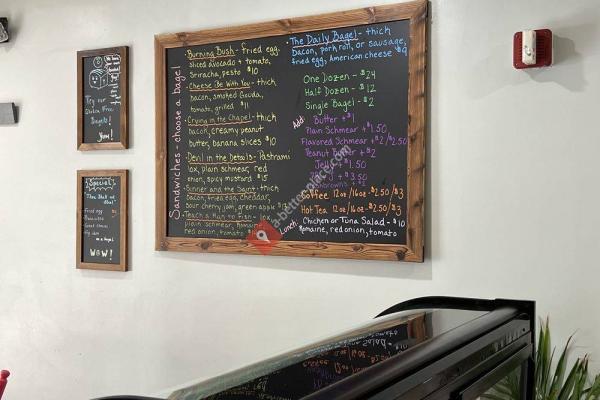 Sandwiches - choose a bagel
Burning Bush - fried egg,
sliced avocado + tomato,
Sriracha, pesto $10
Cheese Be With You - thick
bacon, smoked Gouda,
tomato, grilled $11
Crying in the Chapel - thick
bacon, creamy peanut
butter, banana slices $10
Devil in the Details - Pastrami
lox, plain schmear, red
onion, spicy mustard $15
Sinner and the Saint - thick
bacon, fried egg, Cheddar,
sour cherry jam, green apple
Teach a Man to Fish - lox,
plain schmear, Romaine,
red onion, tomato
The Daily Bagel - thick
bacon, pork roll, or sausage,
fried egg, American cheese $9
One Dozen - $24
Half Dozen - $12
Single Bagel - $2
Add:
Butter + $1
Plain Schmear + $1.50
Flavored Schmear + $2/$2.50
Peanut Butter + $2
Jelly $1.50
$3.50
Coffee 12oz/16oz - $2.50/$3
Hot Tea 12oz/16oz - $2.50/$3
Lunch:
Chicken or Tuna Salad - $10
Romaine, red onion, tomato
Try our
Gluten Free
Bagels!
Yum!
Special
Fried egg
on a bagel
WOW!
a-bettercolicy.com